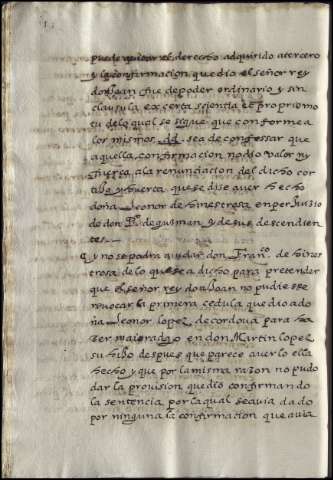 puede quitar el derecho adquirido a tercero
y la confirmacion que dio el señor rey
don Joan fue de poder ordinario y sin
clausula ex certa scientia et proprio mo
tu de lo qual se sigue que conforme a
los mismos dd. sea de confessar que
aquella confirmacion no dio valor ny
fuerça a la renunciacion del dicho cor
tijo y huerta que se dise aver hecho
doña Leonor de hinestrosa en perJuisio
de don P.º de guzman y de sus descendien
tes
y no se podra ayudar don Fran.co de hines
trosa de lo que se a dicho para pretender
que el señor rey don Joan no pudiesse
revocar la primera cedula que dio a do
ña Leonor lopez de cordova para ha
zer maioradgo en don Martin lopez
su hijo despues que parece averlo ella
hecho y que por la misma razon no pudo
dar la provision que dio confirmando
la sentencia por la qual se avia dado
por ninguna la confirmacion que avia